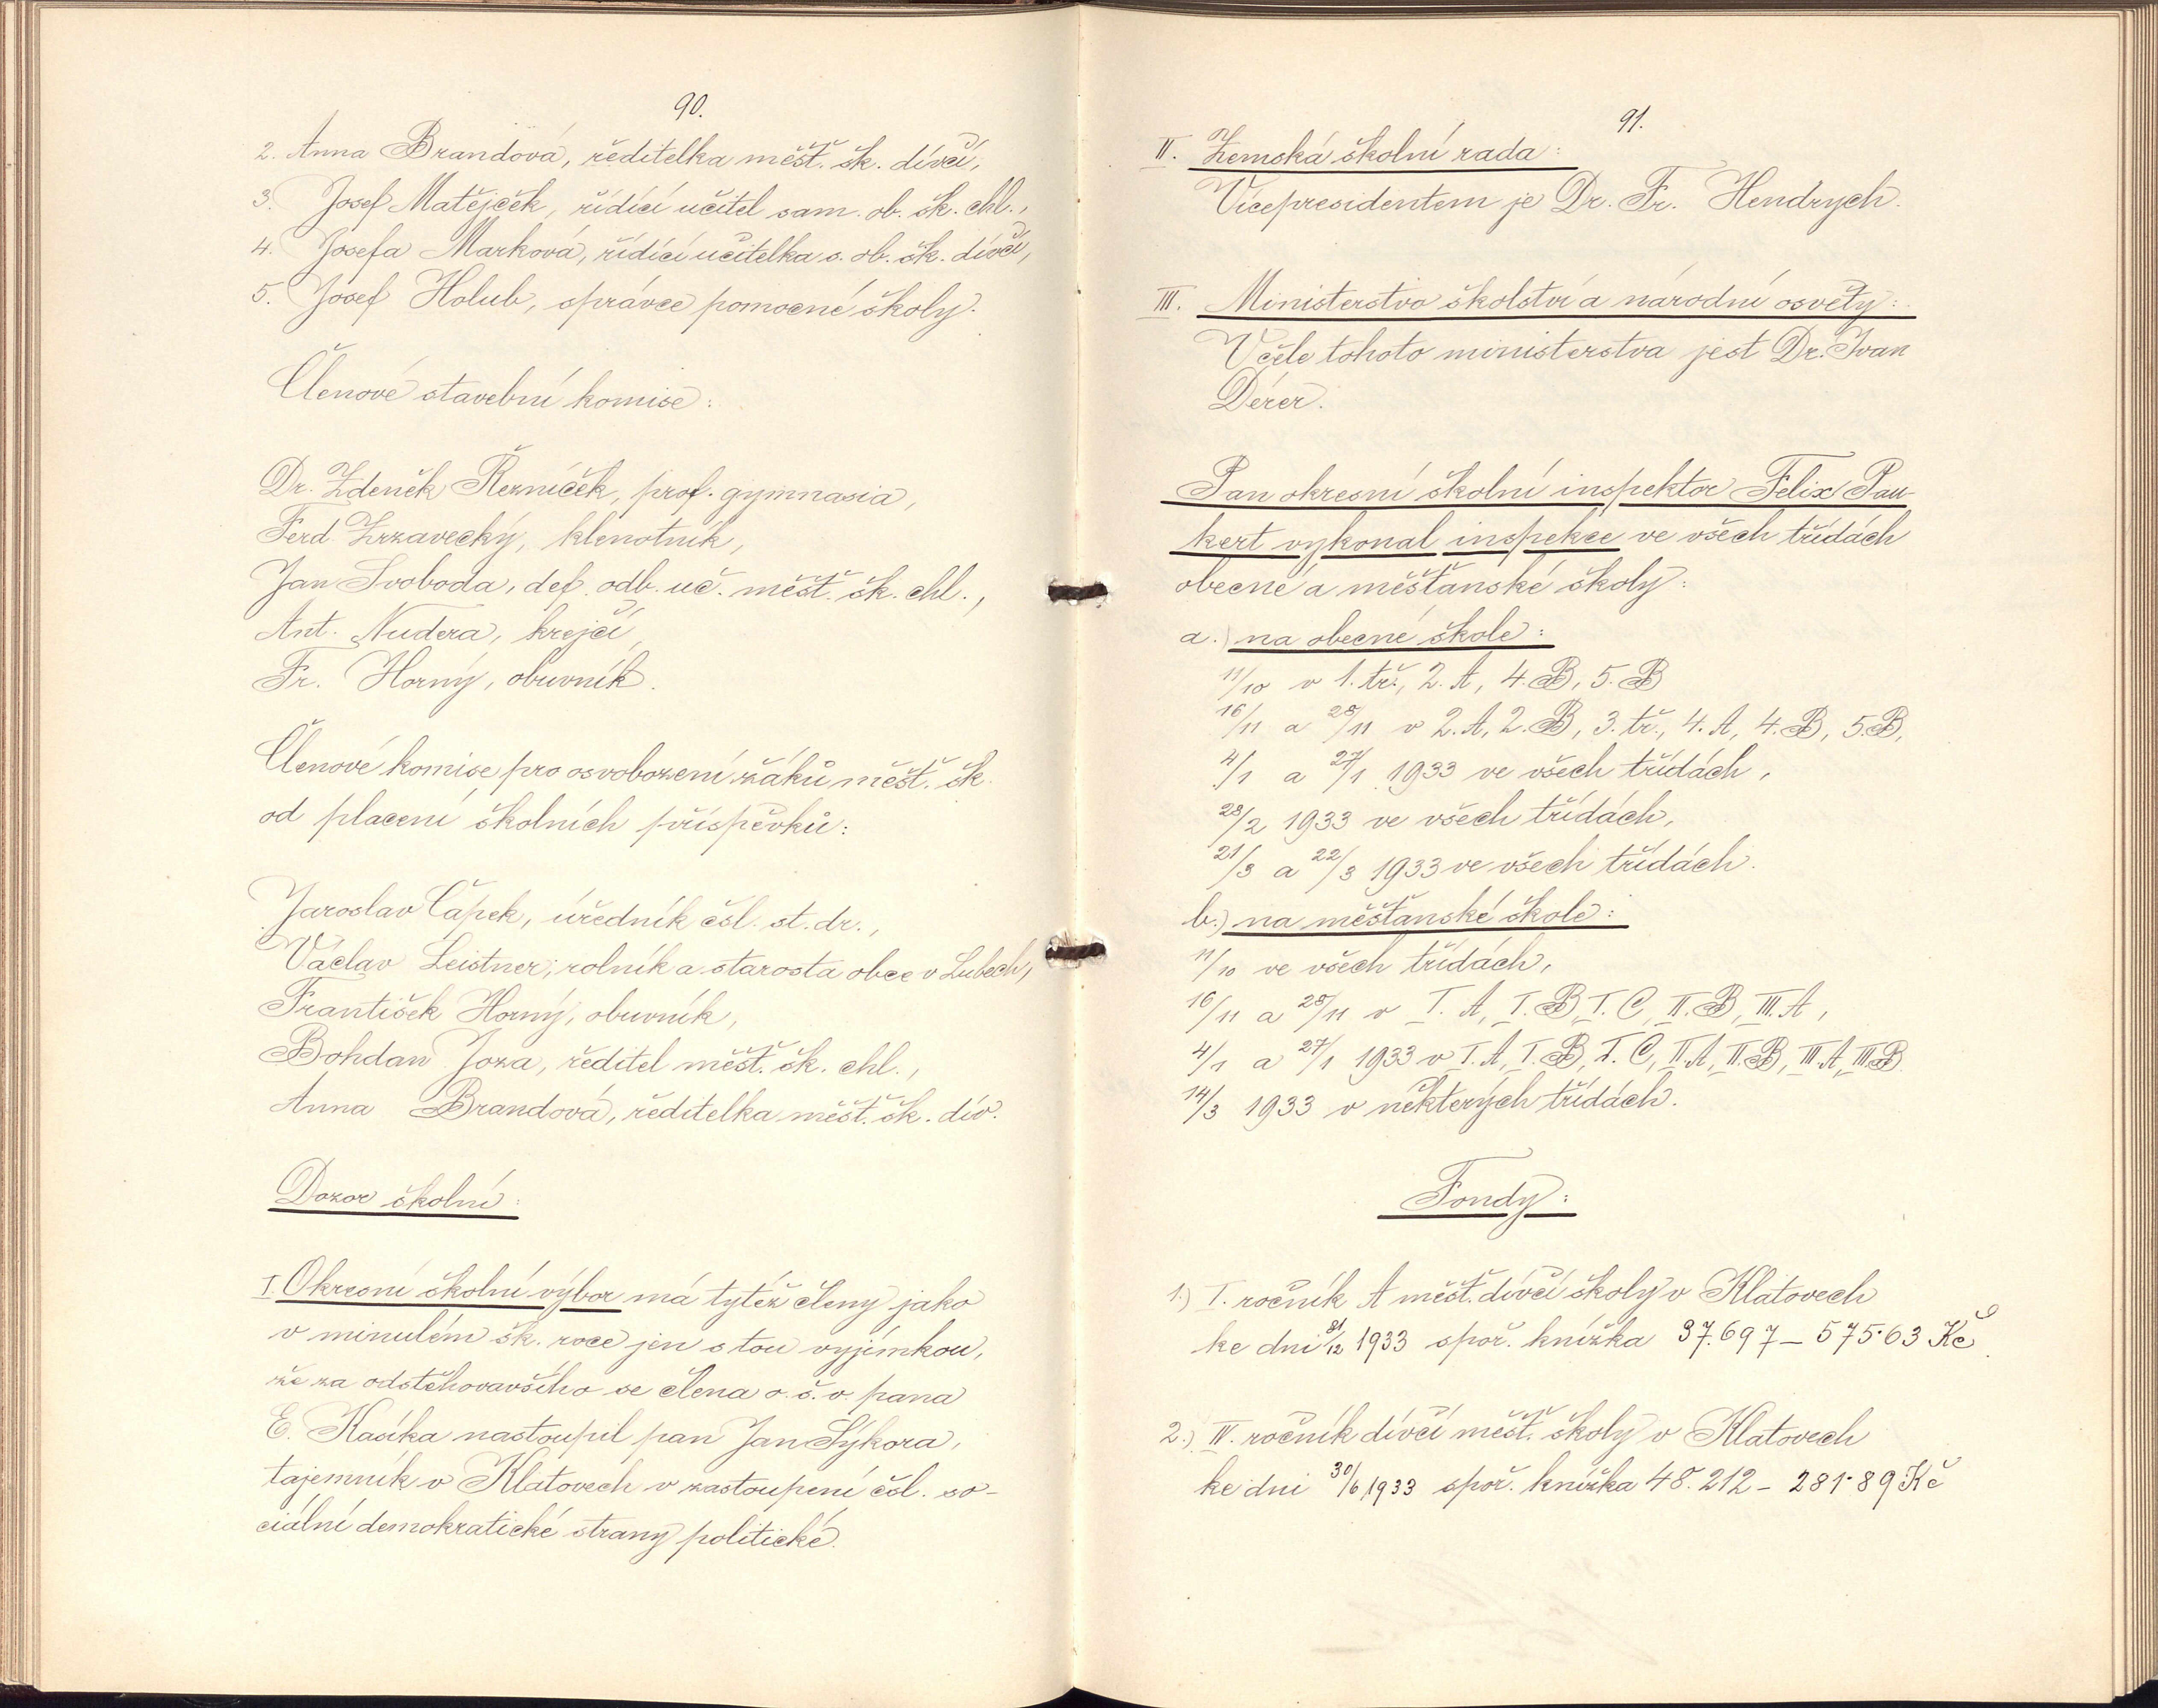 90.
2. Anna Brandová, ředitelka měšť. šk. dívčí,
3. Josef Matějček, řídící učitel sam. ob. šk. chl.,
4. Josefa Marková, řídící učitelka s. ob. šk. dívčí,
5. Josef Holub, správce pomocné školy.
Členové stavební komise:
Dr. Zdeněk Řezníček, prof. gymnasia,
Ferd. Zrzavecký, klenotník,
Jan Svoboda, def. odb. uč. měšť. šk. chl.,
Ant. Nudera, krejčí,
Fr. Horný, obuvník.
Členové komise pro osvobození žáků měšť. šk.
od placení školních příspěvků:
Jaroslav Čapek, úředník čsl. st. dr.,
Václav Leistner, rolník a starosta obce v Lubech,
František Horný, obuvník,
Bohdan Joza, ředitel měšť. šk. chl.,
Anna Brandová, ředitelka měšť. šk. dív.
Dozor školní:
I. Okresní školní výbor má tytéž členy jako
v minulém šk. roce jen s tou vyjímkou,
že za odstěhovavšího se člena o. š. v. pana
E. Kasíka nastoupil pan Jan Sýkora,
tajemník v Klatovech v zastoupení čsl. so-
ciální demokratické strany politické.
91.
II. Zemská školní rada:
Vícepresidentem je Dr. Fr. Hendrych.
III. Ministerstvo školství a národní osvěty:
V čele tohoto ministerstva jest Dr. Ivan
Dérer.
Pan okresní školní inspektor Felix Pau-
kert vykonal inspekce ve všech třídách
obecné a měšťanské školy:
a.) na obecné škole:
11/10 v 1. tř., 2. A, 4. B, 5. B
16/11 a 28/11 v 2. A, 2. B, 3. tř., 4. A, 4. B, 5. B,
4/1 a 27/1 1933 ve všech třídách,
28/2 1933 ve všech třídách,
21/3 a 22/3 1933 ve všech třídách.
b.) na měšťanské škole:
11/10 ve všech třídách,
16/11 a 28/11 v I. A, I. B, I. C, II. B, III. A,
4/1 a 27/1 1933 v I. A, I. B, I. C, II. A, II. B, III. A, III. B.
14/3 1933 v některých třídách.
Fondy:
1.) I. ročník A měšť. dívčí školy v Klatovech
ke dni 31/12 1933 spoř. knížka 37.697 – 575·63 Kč.
2.) IV. ročník dívčí měšť. školy v Klatovech
ke dni 30/6 1933 spoř. knížka 48.212 – 281·89 Kč